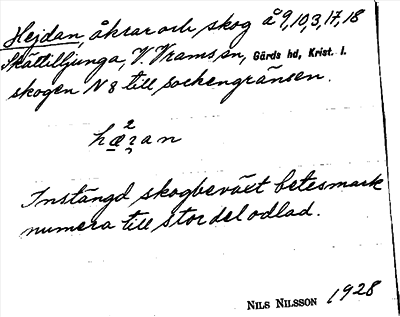 Hejdan, åkrar och skog å 9,10,3,17,18
Skättilljunga, V. Vrams sn, Gärds hd, Krist. l.
skogen N 8 till sockengränsen.
Instängd skogbeväxt betesmark
numera till stor del odlad.
NILS NILSSON 1928